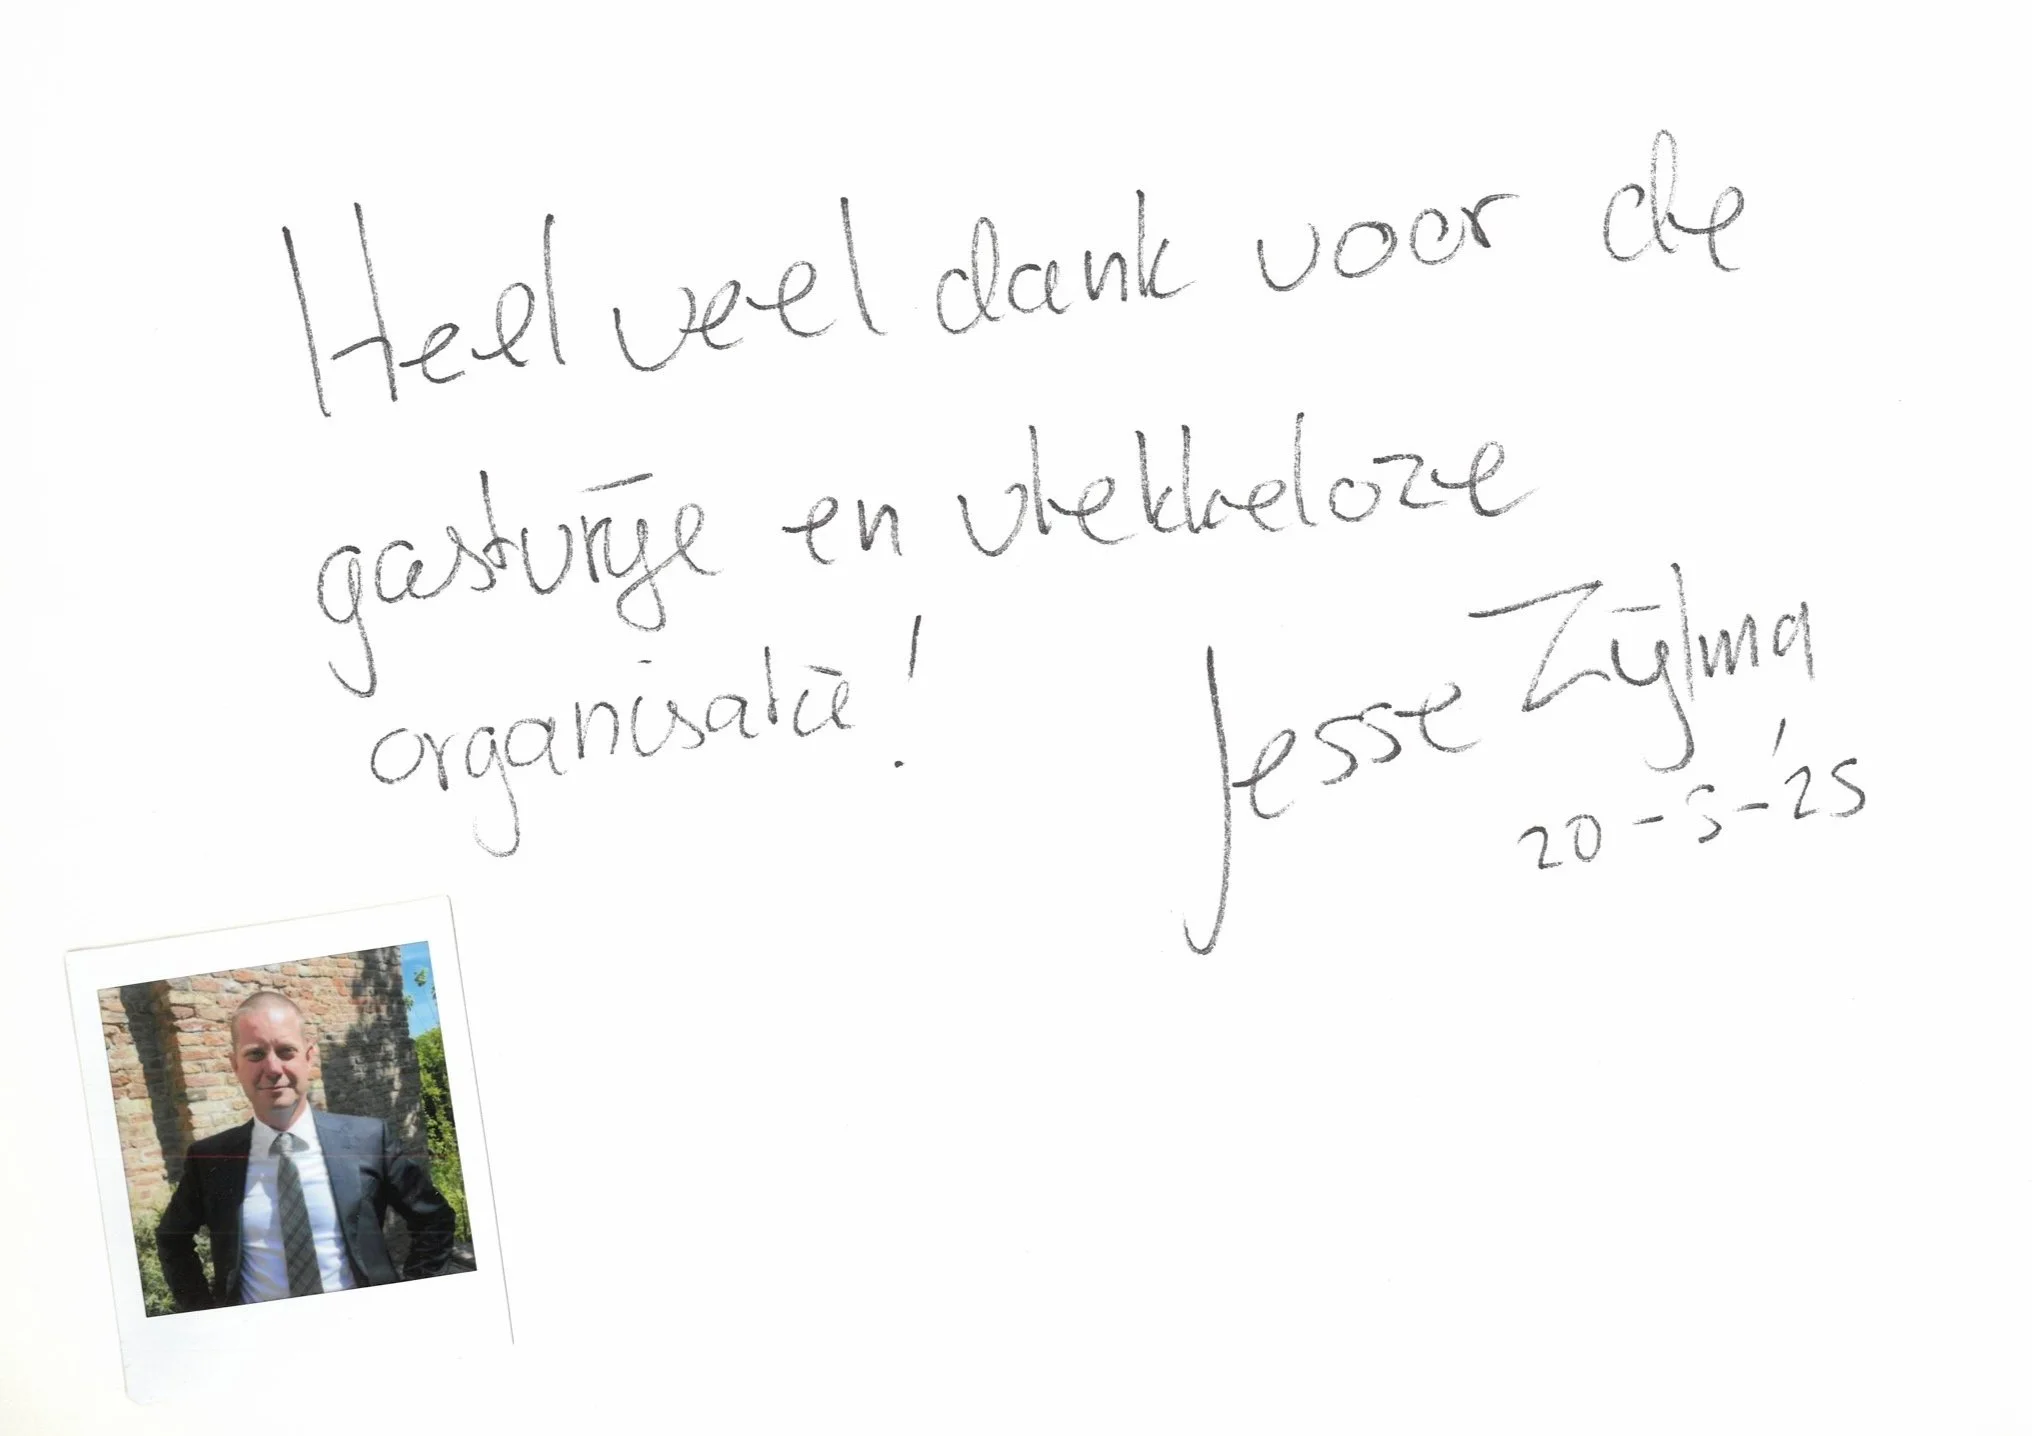 Heel veel dank voor de
gastvrije en vlekkeloze
organisatie!
Jesse Zijlma
20-5-'25